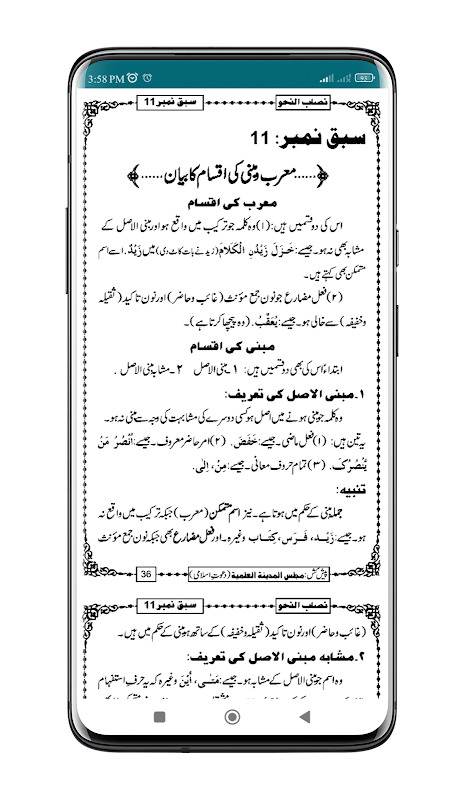 3:58 PM
نصاب النحو سبق نمبر 11
سبق نمبر: 11
﴿......معرب ومبنی کی اقسام کا بیان......﴾
معرب کی اقسام
اس کی دوقسمیں ہیں: (۱) وہ کلمہ جو ترکیب میں واقع ہو اور مبنی الاصل کے
مشابہ بھی نہ ہو۔ جیسے: خَزَلَ زَیْدُنِ الْكَلَامَ (زید نے بات کاٹ دی) میں زَیْدٌ. اسے اسم
متمکن بھی کہتے ہیں۔
(۲) فعل مضارع جو نون جمع مؤنث (غائب وحاضر) اور نون تاکید (ثقیلہ
وخفیفہ) سے خالی ہو۔ جیسے: یُعَقِّبُ. (وہ پیچھا کرتا ہے)۔
مبنی کی اقسام
ابتداءً اس کی بھی دوقسمیں ہیں: ۱۔ مبنی الاصل ۲۔ مشابہ مبنی الاصل .
۱۔ مبنی الاصل کی تعریف:
وہ کلمہ جو مبنی ہونے میں اصل ہو کسی دوسرے کی مشابہت کی وجہ سے مبنی نہ ہو۔
یہ تین ہیں: (۱) فعل ماضی۔ جیسے: خَفَضَ. (۲) امر حاضر معروف۔ جیسے: اُنْصُرْ مَنْ
یَّنْصُرُكَ. (۳) تمام حروف معانی۔ جیسے: مِنْ، اِلٰی.
تنبیہ:
جملہ مبنی کے حکم میں ہوتا ہے۔ نیز اسم متمکن (معرب) جبکہ ترکیب میں واقع نہ
ہو۔ جیسے: زَیْد، فَرَس، كِتَاب وغیرہ۔ اور فعل مضارع بھی جبکہ نون جمع مؤنث
پیش کش: مجلس المدینۃ العلمیۃ (دعوت اسلامی) 36
نصاب النحو سبق نمبر 11
(غائب وحاضر) اور نون تاکید (ثقیلہ وخفیفہ) کے ساتھ ہو مبنی کے حکم میں ہیں۔
۲۔ مشابہ مبنی الاصل کی تعریف:
وہ اسم جو مبنی الاصل کے مشابہ ہو۔ جیسے: مَتٰی، اَیْنَ وغیرہ کہ یہ حرفِ استفہام